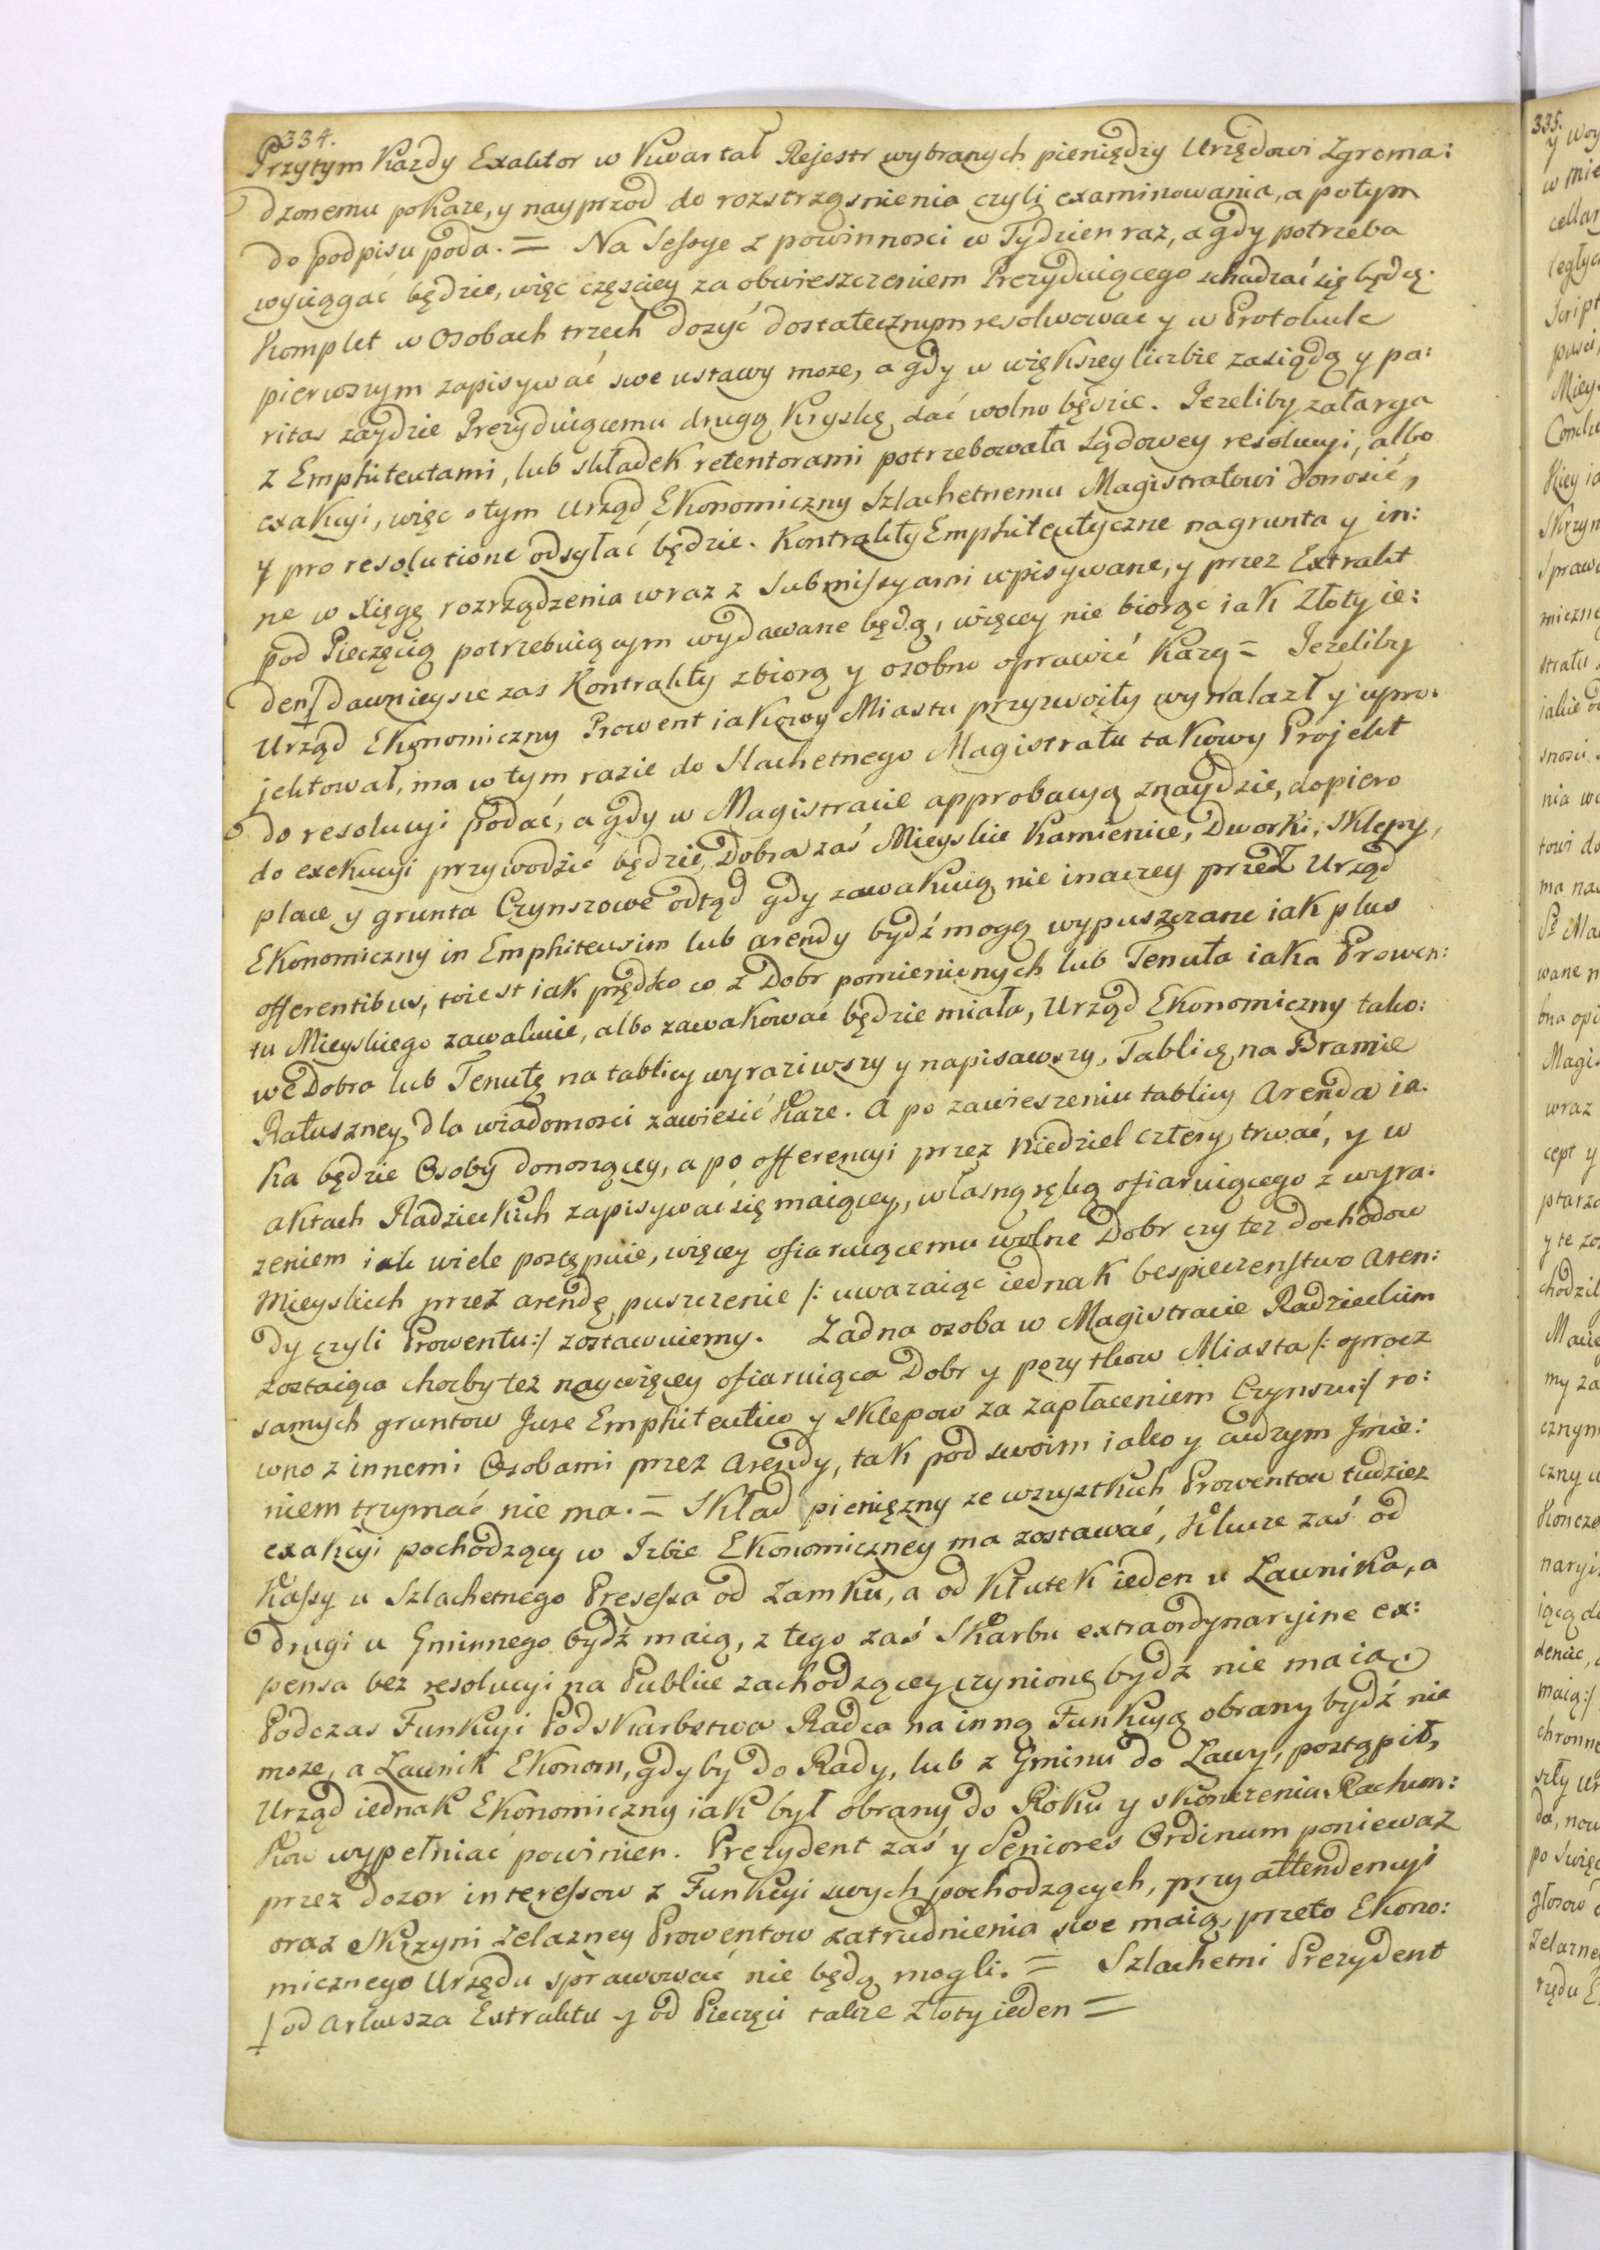 334.
Przytym Kazdy Exaktor w Kwartał Rejestr wybranych pieniędzy Urzędowi Zgroma:
dzonemu pokaze, y nayprzod do rozstrząsnienia czyli examinowania, a potym
do podpisu poda. = Na Sessye z powinnosci w Tydzien raz, a gdy potrzeba
wyciągać będzie, więc częsciey za obwieszczeniem Prezyduiącego schadzać się będą.
Komplet w Osobach trzech dosyć dostatecznym resolwować y w Protokule
pierwszym zapisywać swe ustawy moze, a gdy w większey liczbie zasiądą y pa:
ritas zaydzie Prezyduiącemu drugą Kryskę dać wolno będzie. Jezeliby zatarga
z Emphiteutami, lub składek retentorami potrzebowała Sądowey resolucyi, albo
exakcyi, więc o tym Urząd Ekonomiczny Szlachetnemu Magistratowi donosić,
y pro resolutione odsyłać będzie. Kontrakty Emphiteutyczne na grunta y in:
ne w Xięgę rozrządzenia wraz z Submissyami wpisywane, y przez Extrakt
pod Pieczęcią potrzebuiącym wydawane będą, więcey nie biorąc iak Złoty ie:
den ƒ dawnieysze zas Kontrakty zbiorą y osobno oprawić Kazą = Jezeliby
Urząd Ekonomiczny Prowent iakowy Miastu przyzwoity wynalazł y upro:
jektował, ma w tym razie do Slachetnego Magistratu takowy Projekt
do resolucyi podać, a gdy w Magistracie approbacyą znaydzie, dopiero
do exekucyi przywodzić będzie, Dobra zaś Mieyskie Kamienice, Dworki, Sklepy,
place y grunta Czynszowe odtąd gdy zawakuią nie inaczey przez Urząd
Ekonomiczny in Emphiteusim lub arendy bydź mogą wypuszczane iak plus
offerentibus, toiest iak prędko co z Dobr pomienionych lub Tenuta iaka Prowen:
tu Mieyskiego zawakuie, albo zawakować będzie miała, Urząd Ekonomiczny tako:
we Dobra lub Tenutę na tablicy wyraziwszy y napisawszy, Tablicę na Bramie
Ratuszney dla wiadomosci zawiesić Kaze. A po zawieszeniu tablicy Arenda ia:
ka będzie Osoby donoszącey, a po offerencyi przez Niedziel cztery trwać, y w
aktach Radzieckich zapisywać się maiącey, własną ręką ofiaruiącego z wyra:
zeniem iak wiele postępuie, więcey ofiaruiącemu wolne Dobr czy tez dochodow
Mieyskich przez arendę puszczenie /: uwazaiąc iednak bespieczenstwo aren:
dy czyli Prowentu :/ zostawuiemy. Zadna osoba w Magistracie Radzieckim
zostaiąca chocby tez naywięcey ofiaruiąca Dobr y pozytkow Miasta /: oprocz
samych gruntow Jure Emphiteutico y sklepow za zapłaceniem Czynszu :/ ro:
wno z innemi Osobami przez Arendy, tak pod swoim iako y cudzym Jmie:
niem trzymać nie ma. = Skład pienięzny ze wszystkich Prowentow tudziez
exakcyi pochodzący w Jzbie Ekonomiczney ma zostawać, Klucze zaś od
Kassy u Szlachetnego Presessa od Zamku, a od Kłutek ieden u Lawnika, a
drugi u Gminnego bydź maią, z tego zaś Skarbu extraordynaryine ex:
pensa bez resolucyi na Publice zachodzącey czynione bydź nie maią.
Podczas Funkcyi Podskarbstwa Radca na inną Funkcyą obrany bydź nie
moze, a Lawnik Ekonom, gdyby do Rady, lub z Gminu do Lawy, postąpił,
Urząd iednak Ekonomiczny iak był obrany do Roku y skonczenia Rachun:
kow wypełniać powinien. Prezydent zaś y Seniores Ordinum poniewaz
przez dozor interessow z Funkcyi swych pochodzących, przy attendencyi
oraz Skrzyni Zelazney Prowentow zatrudnienia swe maią, przeto Ekono:
micznego Urzędu sprawować nie będą mogli. = Szlachetni Prezydent
ƒ od Arkusza Extraktu y od Pieczęci takze Złoty ieden =
335.
y woy
w mie
cellar
ległyc
Script
pusci,
Mieys
Conclu
Kiey ia
Skrzyn
Spraw
miczne
stratu
iakie o
snosci
nia w
towi do
ma na
wane n
bna opi
Magis
wraz
cept y
ptarza
y te zo
chodzil
my za
cznym
czny u
Koncze
naryi
iącą d
denie,
maią :/
chronne
szły Ur
da, now
po swię
głosow
Zelazne
rzędu E